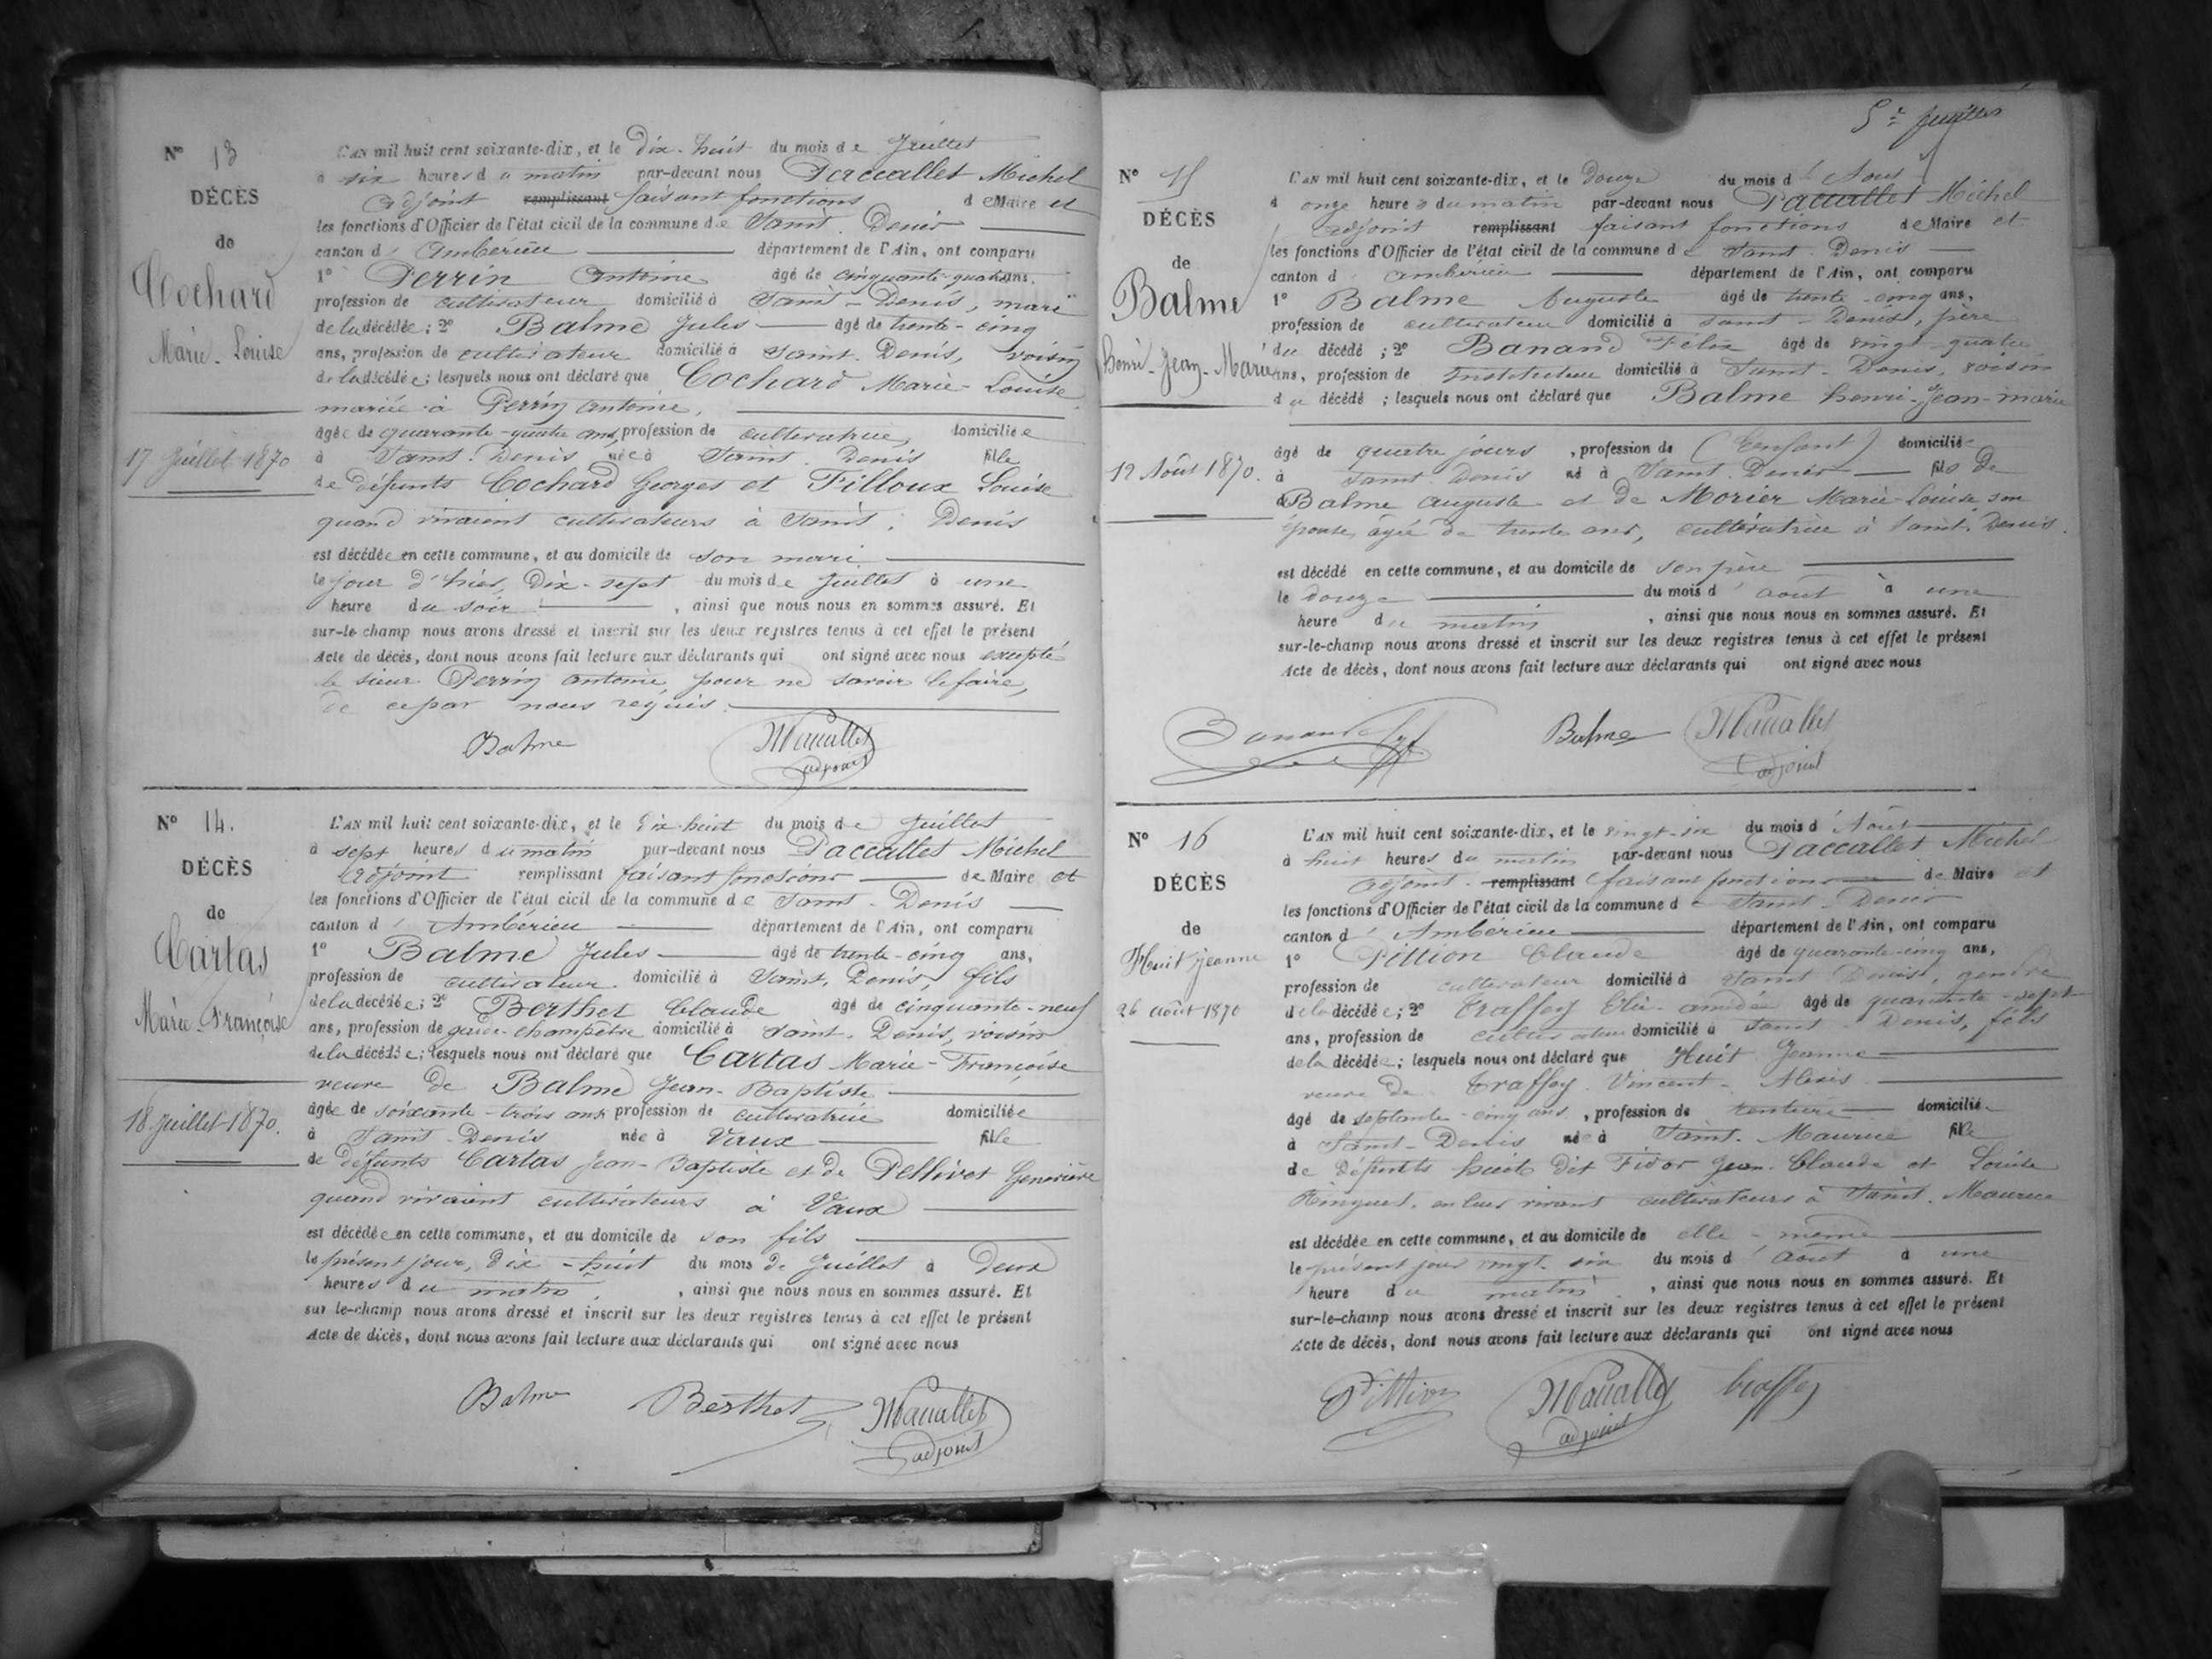 N° 13
DÉCÈS
de
Cochard
Marie-Louise
17 Juillet 1870
L'AN mil huit cent soixante-dix, et le Dix-huit du mois de Juillet
à six heures du matin par-devant nous Paccallet Michel
adjoint remplissant faisant fonctions de Maire et
les fonctions d'Officier de l'état civil de la commune de Saint-Denis
canton d'Ambérieu département de l'Ain, ont comparu
1° Perrin Antoine âgé de cinquante-quatre ans,
profession de cultivateur domicilié à Saint-Denis, mari
de la décédée; 2° Balme Jules âgé de trente-cinq
ans, profession de cultivateur domicilié à Saint-Denis, voisin
de la décédée; lesquels nous ont déclaré que Cochard Marie-Louise
mariée à Perrin Antoine,
âgée de quarante-quatre ans, profession de cultivatrice, domiciliée
à Saint-Denis née à Saint-Denis fille
de défunts Cochard Georges et Filloux Louise
quand vivaient cultivateurs à Saint-Denis
est décédée en cette commune, et au domicile de son mari
le jour d'hier, Dix-sept du mois de Juillet à une
heure du soir, ainsi que nous nous en sommes assuré. Et
sur-le-champ nous avons dressé et inscrit sur les deux registres tenus à cet effet le présent
Acte de décès, dont nous avons fait lecture aux déclarants qui ont signé avec nous excepté
le sieur Perrin Antoine, pour ne savoir le faire,
de ce par nous requis.
Balme
MPaccallet
adjoint
N° 14.
DÉCÈS
de
Cartas
Marie-Françoise
18 Juillet 1870.
L'AN mil huit cent soixante-dix, et le dix-huit du mois de Juillet
à sept heures du matin par-devant nous Paccallet Michel
adjoint remplissant faisant fonctions de Maire et
les fonctions d'Officier de l'état civil de la commune de Saint-Denis
canton d'Ambérieu département de l'Ain, ont comparu
1° Balme Jules âgé de trente-cinq ans,
profession de cultivateur domicilié à Saint-Denis, fils
de la décédée; 2° Berthet Claude âgé de cinquante-neuf
ans, profession de garde-champêtre domicilié à Saint-Denis, voisin
de la décédée; lesquels nous ont déclaré que Cartas Marie-Françoise
veuve de Balme Jean-Baptiste
âgée de soixante-trois ans profession de cultivatrice domiciliée
à Saint-Denis née à Vaux fille
de défunts Cartas Jean-Baptiste et de Pellivet Geneviève
quand vivaient cultivateurs à Vaux
est décédée en cette commune, et au domicile de son fils
le présent jour, dix-huit du mois de Juillet à Deux
heures du matin, ainsi que nous nous en sommes assuré. Et
sur-le-champ nous avons dressé et inscrit sur les deux registres tenus à cet effet le présent
Acte de décès, dont nous avons fait lecture aux déclarants qui ont signé avec nous
Balme
Berthet
MPaccallet
adjoint
5e feuillet
N° 15
DÉCÈS
de
Balme
Henri-Jean-Marie
12 Août 1870.
L'AN mil huit cent soixante-dix, et le Douze du mois d'Août
à onze heures du matin par-devant nous Paccallet Michel
adjoint remplissant faisant fonctions de Maire et
les fonctions d'Officier de l'état civil de la commune de Saint-Denis
canton d'Ambérieu département de l'Ain, ont comparu
1° Balme Auguste âgé de trente-cinq ans,
profession de cultivateur domicilié à Saint-Denis, père
du décédé; 2° Banand Félix âgé de vingt-quatre
ans, profession de Instituteur domicilié à Saint-Denis, voisin
du décédé; lesquels nous ont déclaré que Balme henri-Jean-marie
âgé de quatre jours, profession de (Enfant) domicilié
à Saint-Denis né à Saint-Denis fils de
Balme Auguste et de Morier Marie-Louise son
épouse, âgée de trente ans, cultivatrice à Saint-Denis.
est décédé en cette commune, et au domicile de son père
le douze du mois d'août à une
heure du matin, ainsi que nous nous en sommes assuré. Et
sur-le-champ nous avons dressé et inscrit sur les deux registres tenus à cet effet le présent
Acte de décès, dont nous avons fait lecture aux déclarants qui ont signé avec nous
Banand
Balme
MPaccallet
adjoint
N° 16
DÉCÈS
de
Huit Jeanne
26 août 1870
L'AN mil huit cent soixante-dix, et le vingt-six du mois d'Août
à huit heures du matin par-devant nous Paccallet Michel
adjoint remplissant faisant fonctions de Maire et
les fonctions d'Officier de l'état civil de la commune de Saint-Denis
canton d'Ambérieu département de l'Ain, ont comparu
1° Pittion Claude âgé de quarante-cinq ans,
profession de cultivateur domicilié à Saint-Denis, gendre
de la décédée; 2° Traffey Elie-amédée âgé de quarante-sept
ans, profession de cultivateur domicilié à Saint-Denis, fils
de la décédée; lesquels nous ont déclaré que Huit Jeanne
veuve de Traffey Vincent-Alexis
âgé de septante-cinq ans, profession de rentière domiciliée
à Saint-Denis née à Saint-Maurice fille
de Défunts huit dit Fidor Jean-Claude et Louise
Ringuet, en leur vivant cultivateurs à Saint-Maurice
est décédée en cette commune, et au domicile de elle-même
le présent jour vingt-six du mois d'août à une
heure du matin, ainsi que nous nous en sommes assuré. Et
sur-le-champ nous avons dressé et inscrit sur les deux registres tenus à cet effet le présent
Acte de décès, dont nous avons fait lecture aux déclarants qui ont signé avec nous
Pittion
MPaccallet
adjoint
traffey